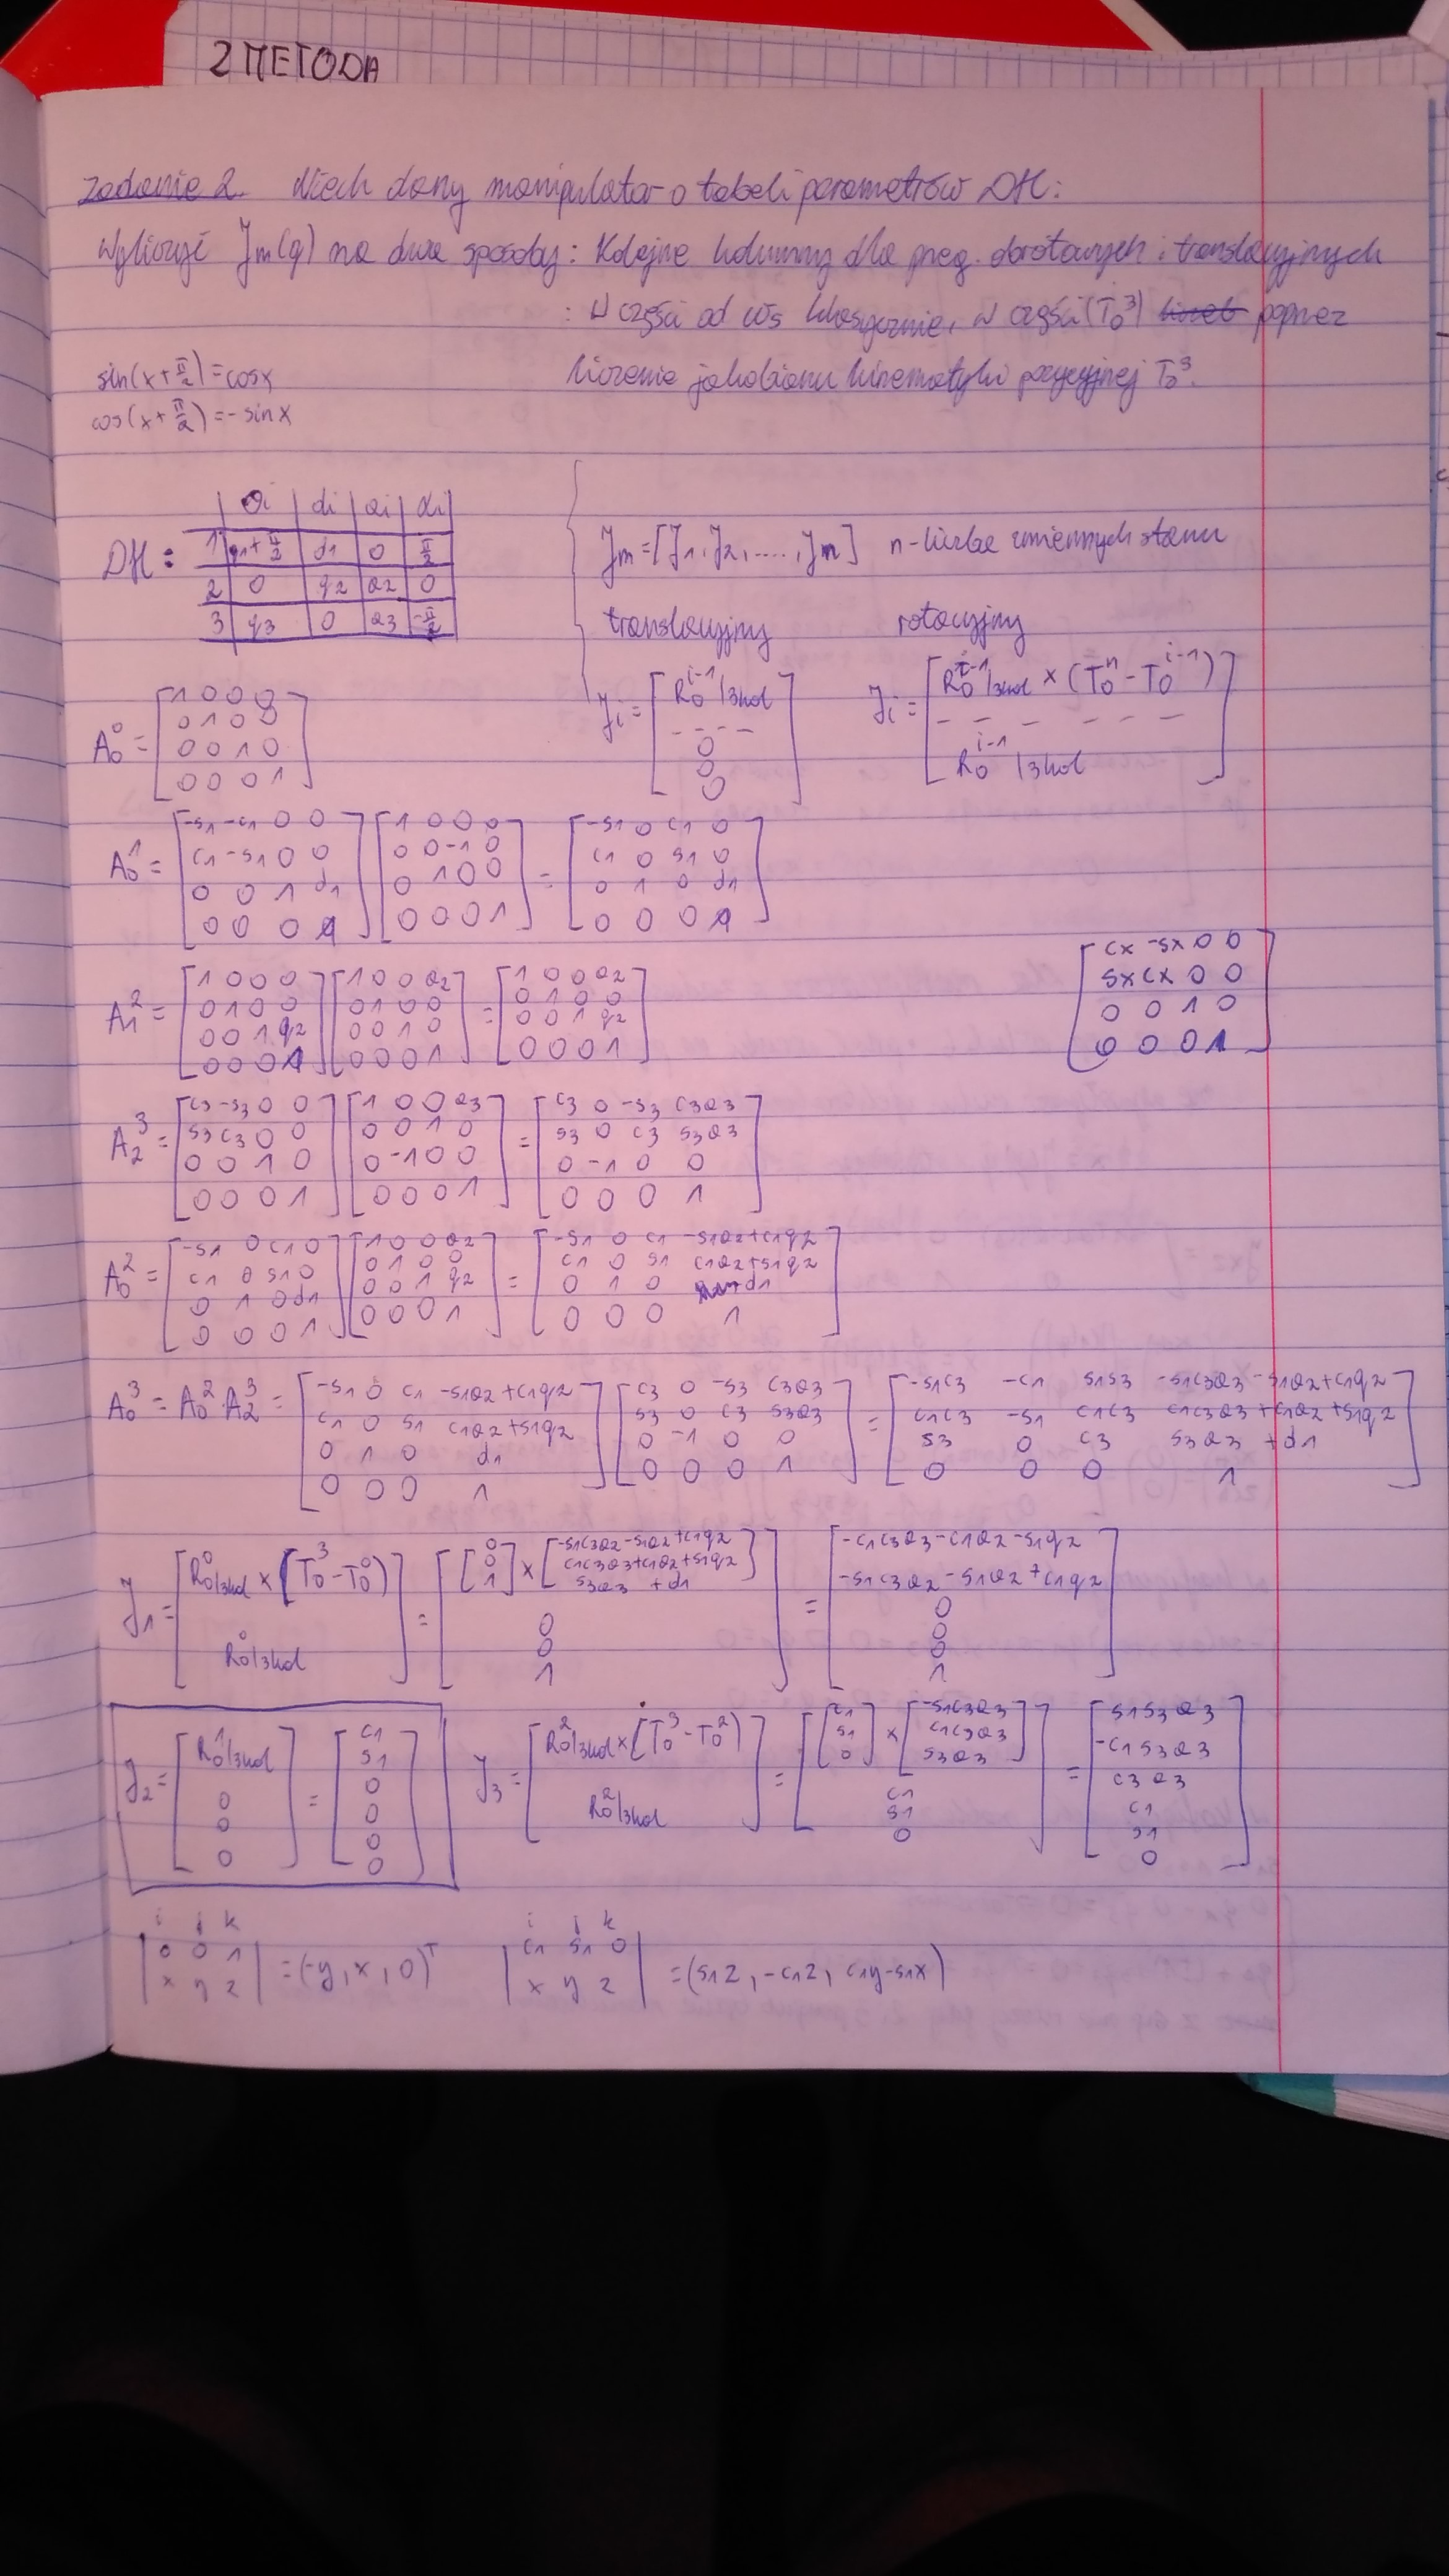 2 METODA
Zadanie 2. Niech dany manipulator o tabeli parametrów DH:
Wyliczyć Jm(q) na dwa sposoby: Kolejne kolumny dla przeg. obrotowych i translacyjnych
: W części od ω's klasycznie, w części (T₀³) poprzez
liczenie jakobianu kinematyki pozycyjnej T₀³.
sin(x+π/2)=cosx
cos(x+π/2)=-sinx
DH:
| | θi | di | ai | αi |
| 1 | q1+π/2 | d1 | 0 | π/2 |
| 2 | 0 | q2 | a2 | 0 |
| 3 | q3 | 0 | a3 | -π/2 |
Jm=[J1,J2,....,Jn] n-liczba zmiennych stanu
translacyjny rotacyjny
Ji=[R₀^(i-1)|3kol --- 0 0 0] Ji=[R₀^(i-1)|3kol × (T₀^n - T₀^(i-1)) --- R₀^(i-1)|3kol]
A₀⁰=[1 0 0 0; 0 1 0 0; 0 0 1 0; 0 0 0 1]
A₀¹=[-s1 -c1 0 0; c1 -s1 0 0; 0 0 1 d1; 0 0 0 1][1 0 0 0; 0 0 -1 0; 0 1 0 0; 0 0 0 1]=[-s1 0 c1 0; c1 0 s1 0; 0 1 0 d1; 0 0 0 1]
[cx -sx 0 0; sx cx 0 0; 0 0 1 0; 0 0 0 1]
A₁²=[1 0 0 0; 0 1 0 0; 0 0 1 q2; 0 0 0 1][1 0 0 a2; 0 1 0 0; 0 0 1 0; 0 0 0 1]=[1 0 0 a2; 0 1 0 0; 0 0 1 q2; 0 0 0 1]
A₂³=[c3 -s3 0 0; s3 c3 0 0; 0 0 1 0; 0 0 0 1][1 0 0 a3; 0 0 1 0; 0 -1 0 0; 0 0 0 1]=[c3 0 -s3 c3a3; s3 0 c3 s3a3; 0 -1 0 0; 0 0 0 1]
A₀²=[-s1 0 c1 0; c1 0 s1 0; 0 1 0 d1; 0 0 0 1][1 0 0 a2; 0 1 0 0; 0 0 1 q2; 0 0 0 1]=[-s1 0 c1 -s1a2+c1q2; c1 0 s1 c1a2+s1q2; 0 1 0 d1; 0 0 0 1]
A₀³=A₀²·A₂³=[-s1 0 c1 -s1a2+c1q2; c1 0 s1 c1a2+s1q2; 0 1 0 d1; 0 0 0 1][c3 0 -s3 c3a3; s3 0 c3 s3a3; 0 -1 0 0; 0 0 0 1]=[-s1c3 -c1 s1s3 -s1c3a3-s1a2+c1q2; c1c3 -s1 c1c3 c1c3a3+c1a2+s1q2; s3 0 c3 s3a3+d1; 0 0 0 1]
J1=[R₀⁰|3kol×[T₀³-T₀⁰); R₀⁰|3kol]=[[0 0 1]×[-s1c3a2-s1a2+c1q2; c1c3a3+c1a2+s1q2; s3a3+d1]; 0; 0; 1]=[-c1c3a3-c1a2-s1q2; -s1c3a2-s1a2+c1q2; 0; 0; 0; 1]
J2=[R₀¹|3kol; 0; 0; 0]=[c1; s1; 0; 0; 0; 0]
J3=[R₀²|3kol×[T₀³-T₀²); R₀²|3kol]=[[c1; s1; 0]×[-s1c3a3; c1c3a3; s3a3]; c1; s1; 0]=[s1s3a3; -c1s3a3; c3a3; c1; s1; 0]
|i j k; 0 0 1; x y z|=(-y,x,0)ᵀ |i j k; c1 s1 0; x y z|=(s1z,-c1z,c1y-s1x)